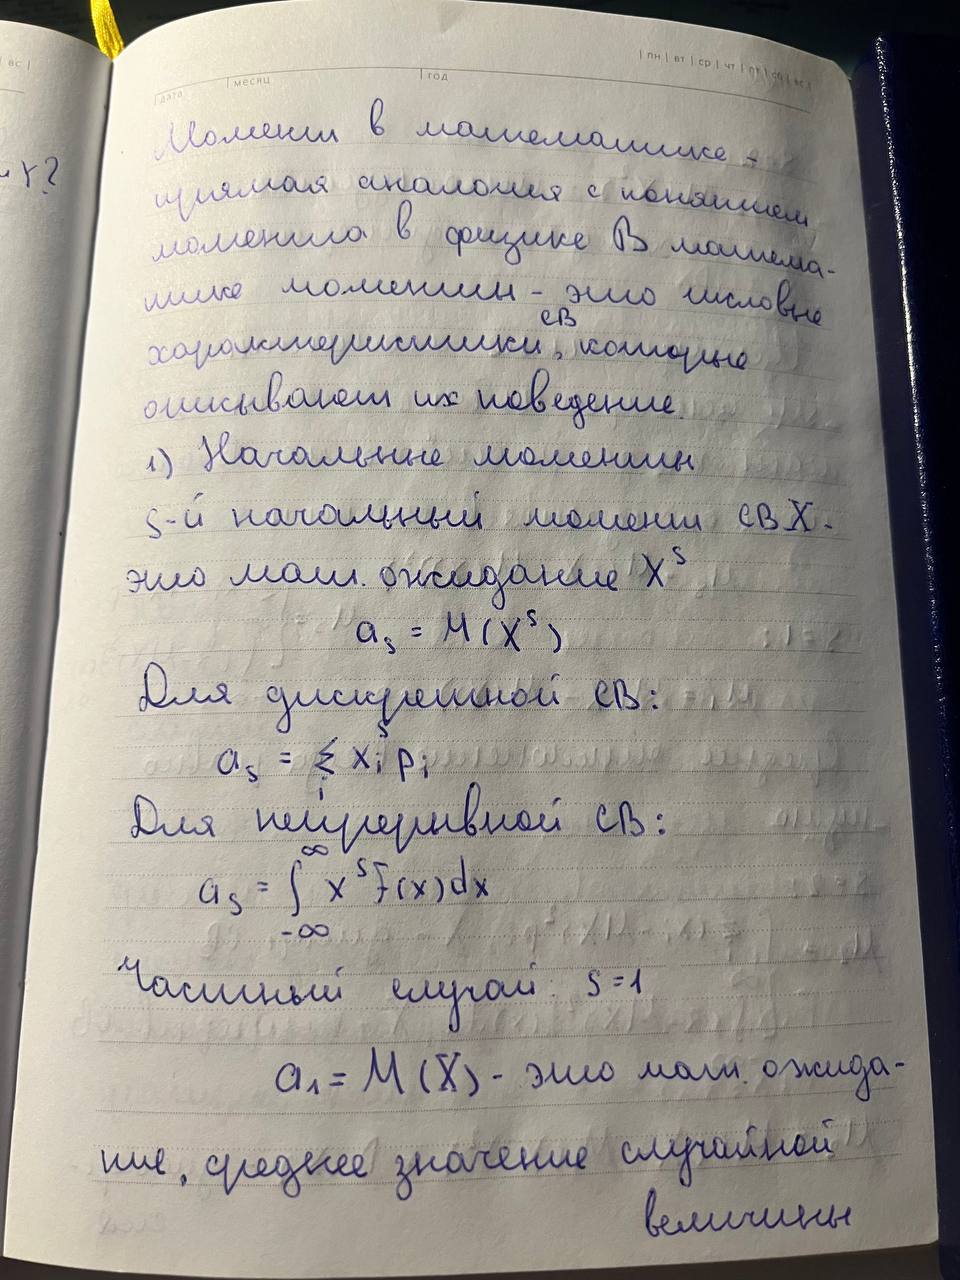 вс
и Y?
дата месяц год пн вт ср чт пт сб вс
Момент в математике -
прямая аналогия с понятием
момента в физике В матема-
тике моменты - это числовые
СВ
характеристики, которые
описывают их поведение.
1) Начальные моменты
s-й начальный момент СВ X -
это мат. ожидание X^s
a_s = M(X^s)
Для дискретной СВ:
a_s = Σ_i x_i^s p_i
Для непрерывной СВ:
a_s = ∫_{-∞}^{∞} x^s f(x)dx
Частный случай: s=1
a_1 = M(X) - это мат. ожида-
ние, среднее значение случайной
величины